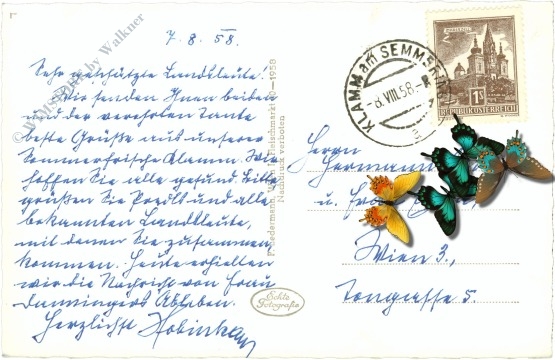 7. 8. 58.
Sehr geschätzte Landsleute!
Wir senden Ihnen beiden
und der verehrten Tante
beste Grüße aus unserer
Sommerfrische Klamm. Wir
hoffen Sie alle gesund. Bitte
grüßen Sie Pozdls und alle
bekannten Landsleute,
mit denen Sie zusammen
kommen. Heute erhielten
wir die Nachricht von Frau
Ableben.
Herzlichst
by Walkner
Wien
Fleischmarkt
1958
Nachdruck verboten
Echte
Fotografie
KLAMM am SEMMERING
-8. VIII. 58.-8
1S
REPUBLIK ÖSTERREICH
Herrn
Hermann
u.
Wien 3.,
Tongasse 5.